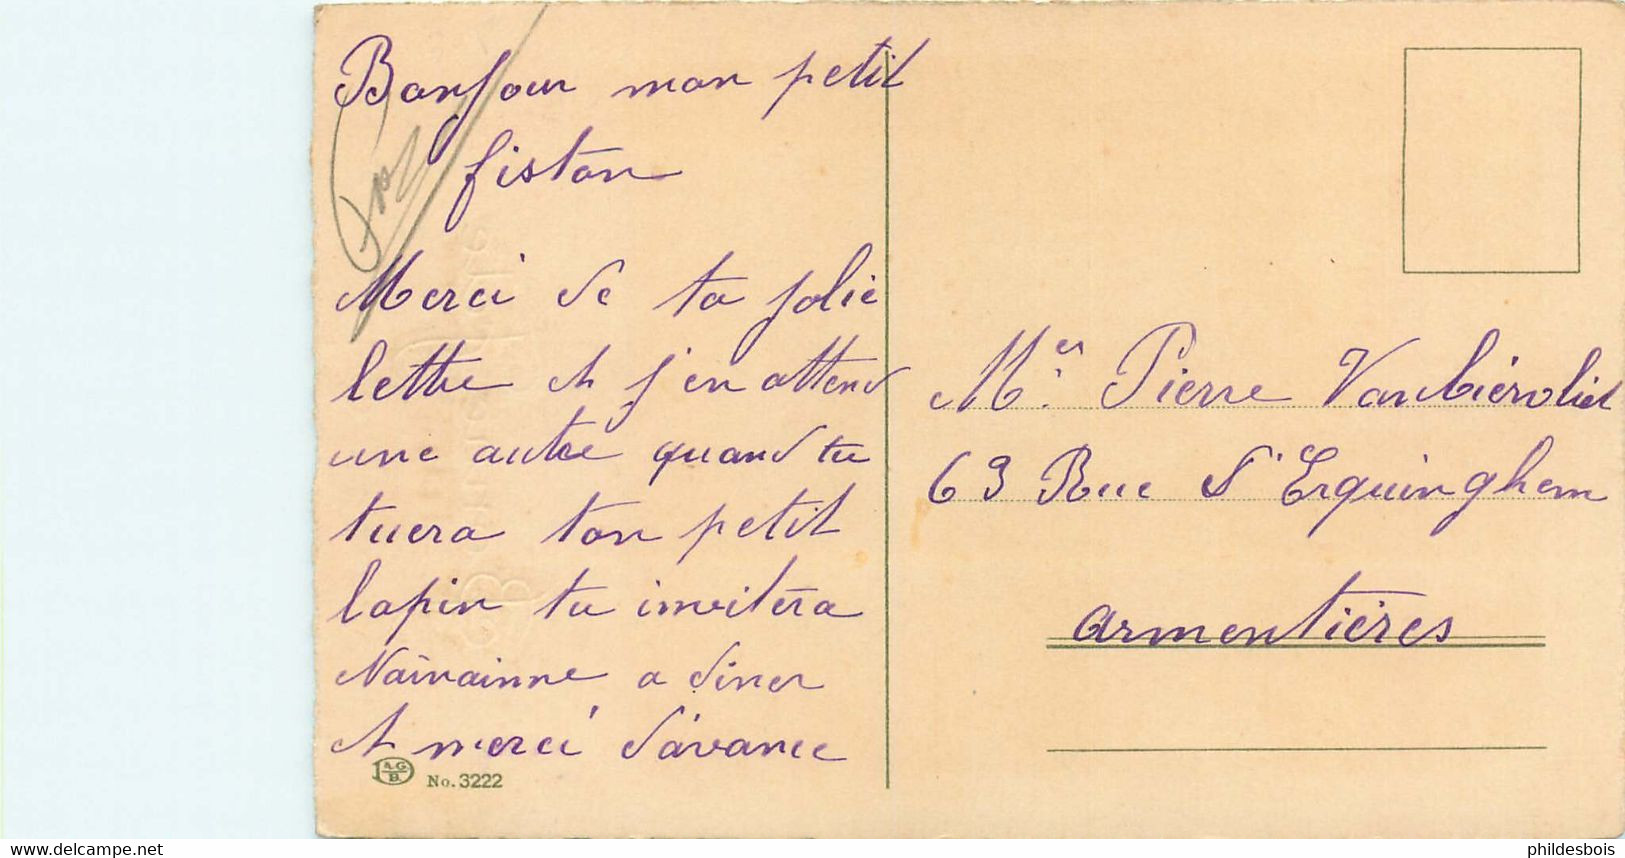 Bonjour mon petit
fiston
Merci de ta jolie
lettre et j'en attend
une autre quand tu
tuera ton petit
lapin tu invitera
Nainainne a diner
et merci d'avance
A.G.
B.
No. 3222
Mer Pierre Vanbiervliet
63 Rue d'Erquinghem
Armentières
www.delcampe.net
phildesbois